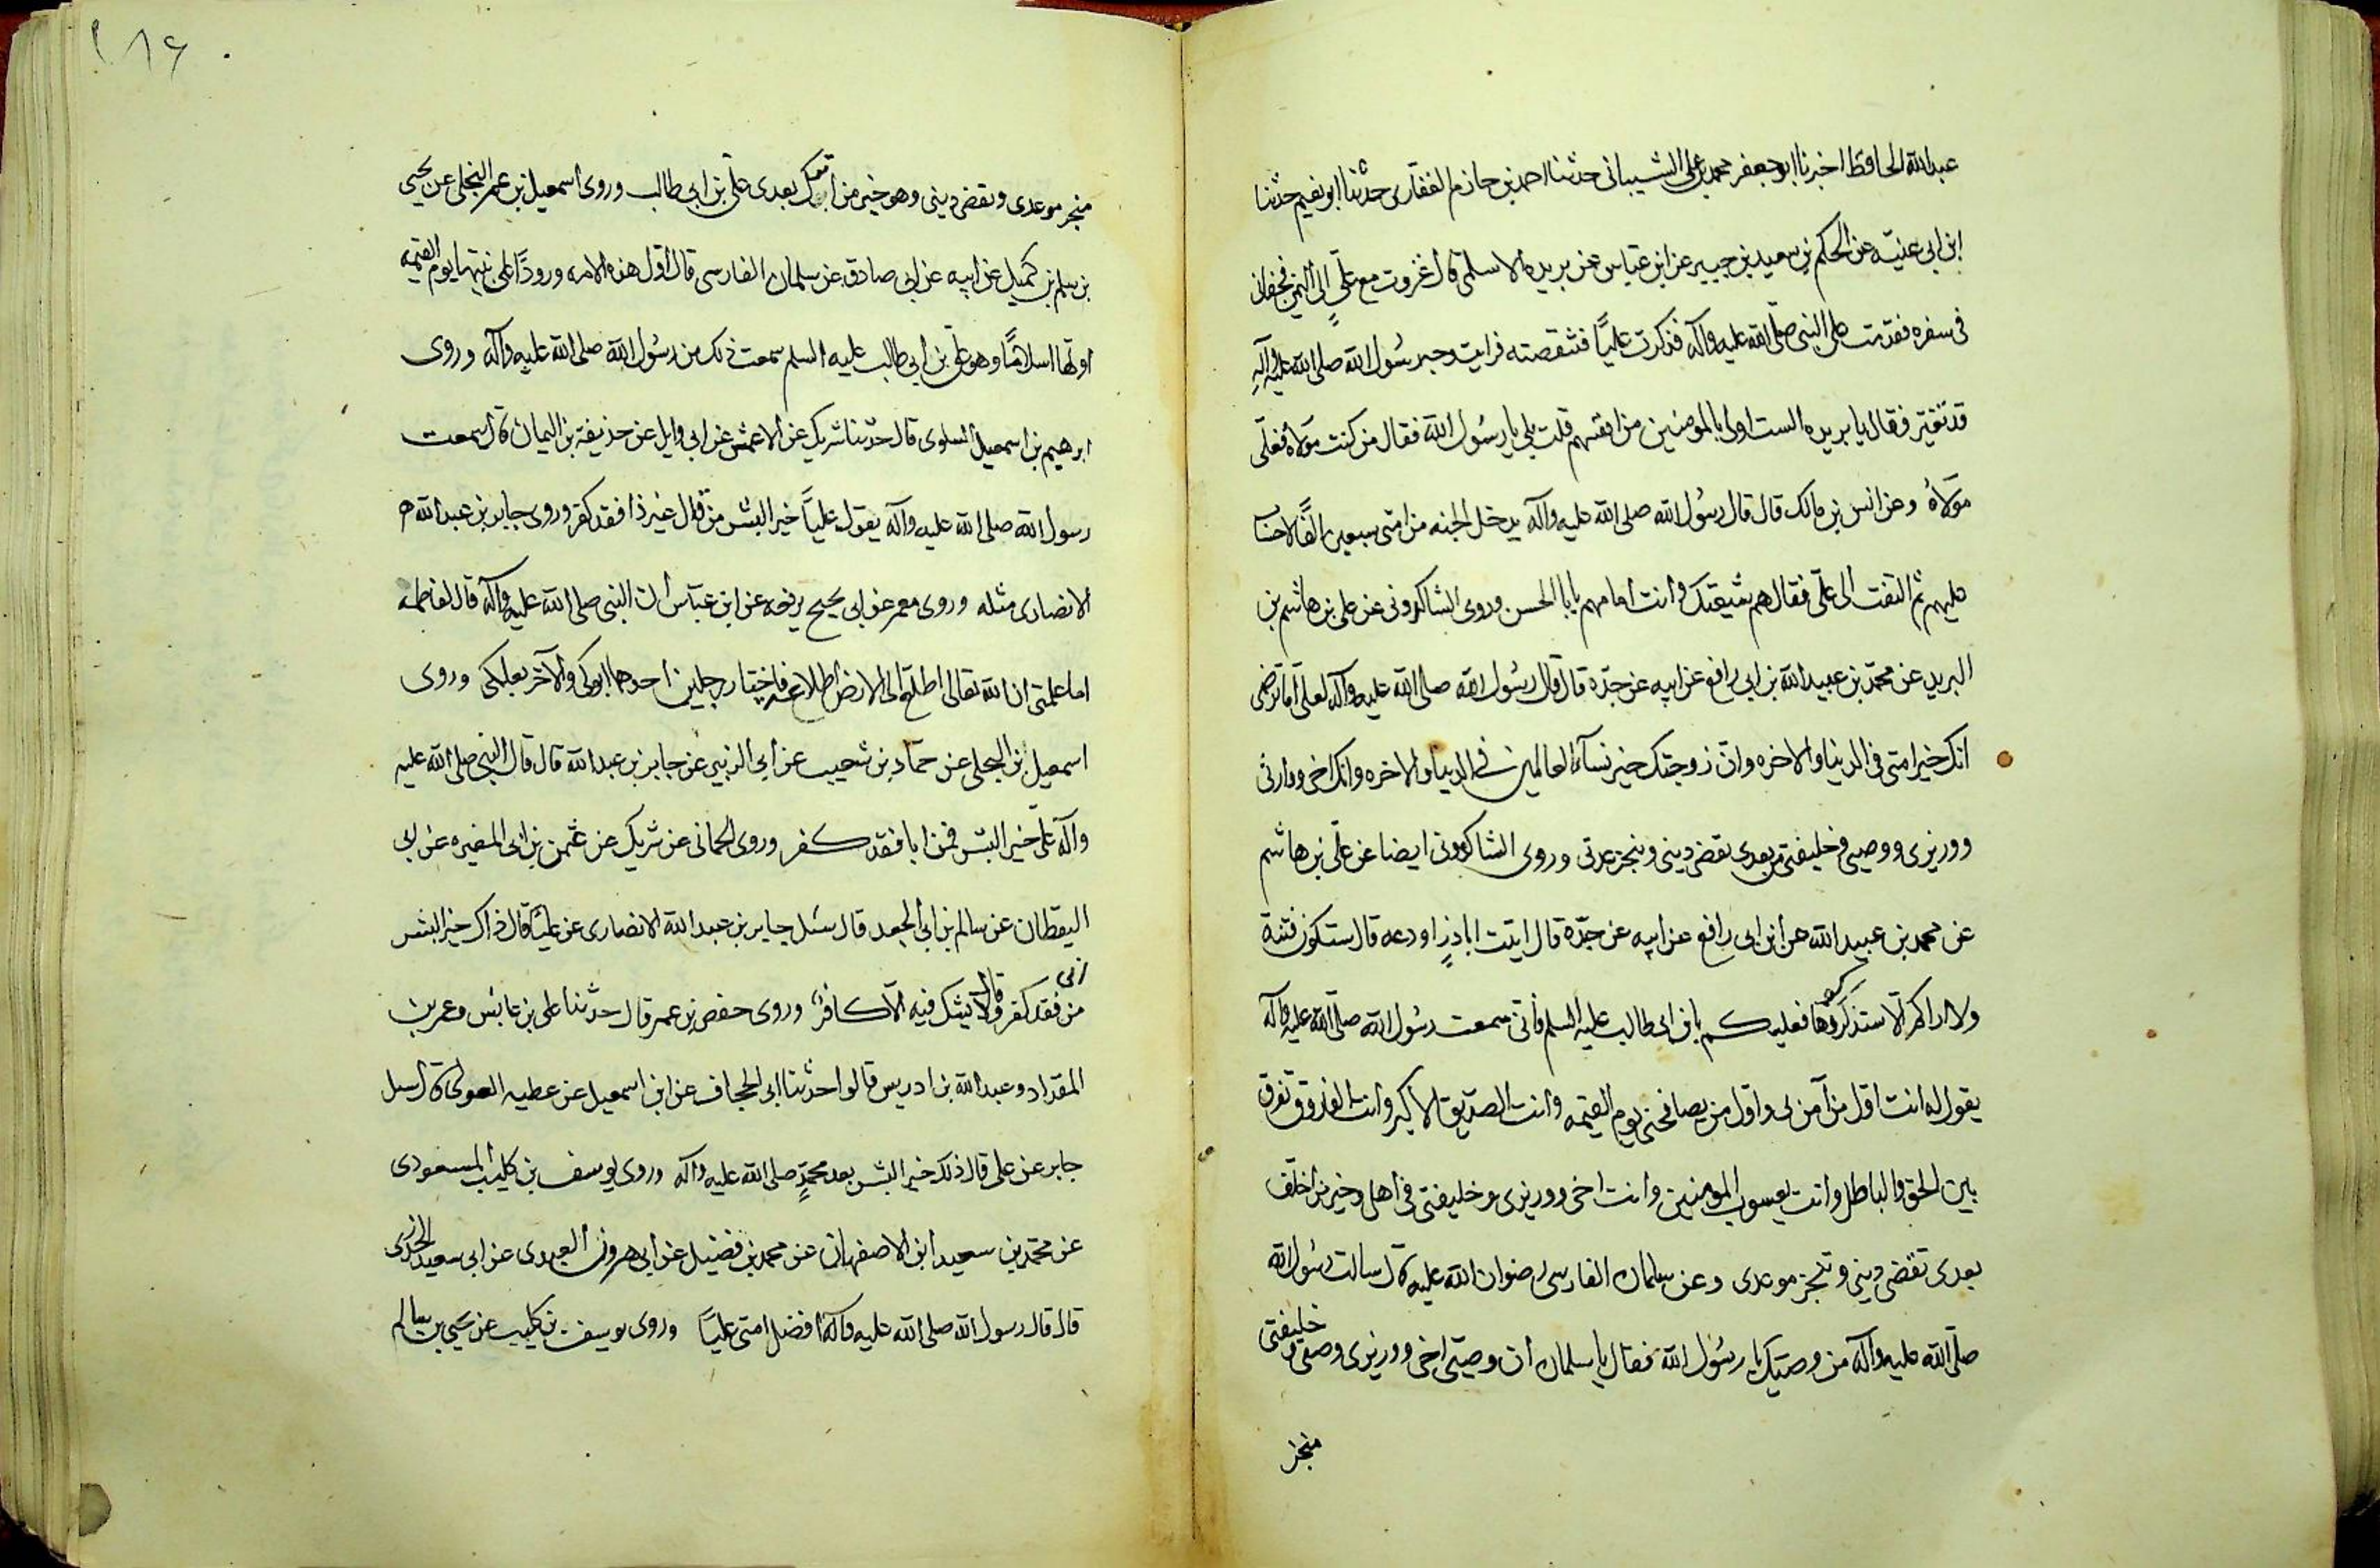 عبدالله الحافظ اخبرنا ابوجعفر محمد بن علی الشیبانی حدثنا احمد بن حازم الغفاری حدثنا ابو نعیم حدثنا
ابن ابی عنیّه عن الحکم بن سعید بن جبیر عن ابن عباس عن بریده الاسلمی قال غزوت مع علیٍّ الی الیمن
فی سفره فقدمت علی النبی صلی الله علیه وآله فذکرت علیًّا فتنقصته فرایت وجه رسُول الله صلی الله علیه وآلهِ
قد تغیّر فقال یا بریده الست اولی بالمومنین من انفسهم قلت بلی یا رسُول الله فقال من کنت مَولاه فعلّی
مَولاهُ وعن انس بن مالک قال قال رسُول الله صلی الله علیه وآله یدخل الجنه من امتی سبعین الفًا لاحساب
علیهم ثم التفت الی علّی فقال هم شیعتک وانت امامهم یابا الحسن وروی الشاکرونی عن علی بن هاشم بن
البرید عن محمّد بن عبیدالله بن ابی رافع عن ابیه عن جدّه قال قال رسُول الله صلی الله علیه وآله لعلی اما ترضی
انک خیر امتی فی الدنیا والاخره وانّ زوجتک خیر نسآء العالمین فی الدنیا والاخره وانک اخی ووارثی
ووزیری ووصیی وخلیفتی من بعدی تقضی دینی وینجز عدتی وروی الشاکرونی ایضا عن علّی بن هاشم
عن محمد بن عبیدالله عن ابن ابی رافع عن ابیه عن جدّه قال اتیت اباذرٍ اودعه قال ستکون فتنة
ولا اراکم الّا ستذکروها فعلیکم بابن ابی طالب علیه السلم فأنی سمعت رسُول الله صلّی الله علیه وآله
یقول له انت اوّل من آمن بی واوّل من یصافحنی یوم القیمه وانت الصدّیق الاکبر وانت الفاروق تفرق
بین الحق والباطل وانت یعسوب المومنین وانت اخی ووزیری وخلیفتی فی اهلی وخیر من اخلّف
بعدی تقضی دینی وتنجز موعدی وعن سلمان الفارسی رضوان الله علیه قال سالت رسُول الله
صلّی الله علیه وآله من وصیّک یا رسُول الله فقال یا سلمان ان وصیّی اخی ووزیری وصیّی وخلیفتی
منجز
۱۸۶
منجز موعدی وتقضی دینی وهو خیر من اترک بعدی علّی بن ابی طالب وروی اسمعیل بن عمر البجلی عن یحیی
بن سلم بن کمیل عن ابیه عن ابی صادق عن سلمان الفارسی قال اوّل هذه الامه ورودًا علی نبیّها یوم القیمه
اوّلها اسلامًا وهو علی بن ابی طالب علیه السلم سمعت ذلک من رسُول الله صلی الله علیه وآله وروی
ابرهیم بن اسمعیل السلوی قال حدّثنا شریک عن الاعمش عن ابی وایل عن حذیفة بن الیمان قال سمعت
رسول الله صلی الله علیه وآله یقول علیاً خیر البشر من قال غیر ذا فقد کفر وروی جابر بن عبدالله
الانصاری مثله وروی معمر عن ابی نجیح یرفعه عن ابن عبّاس ان النبی صلی الله علیه وآله قال لفاطمه
اما علمتی ان الله تعالی اطلع الی الارض اطلاعه فاختار رجلین احدهما ابوکی والآخر بعلکی وروی
اسمعیل بن البجلی عن حمّاد بن شعیب عن ابی الزبیر عن جابر بن عبدالله قال قال النبی صلی الله علیه
وآله علّی خیر البشر فمن ابا فقد کفر وروی الحمانی عن شریک عن عثمن بن ابی المغیره عن ابی
الیقطان عن سالم بن ابی الجعد قال سئل جابر بن عبدالله الانصاری عن علیًّ قال ذاک خیر البشر
من ابی فقد کفر وقال لا یشک فیه الّا کافر وروی حفص بن عمر قال حدثنا علی بن عابس وعمر بن
المقداد وعبدالله بن ادریس قالوا حدثنا ابی الجحاف عن ابن اسمعیل عن عطیه العوفی قال سیل
جابر عن علی قال ذلک خیر البشر بعد محمّدٍ صلی الله علیه وآله وروی یوسف بن کلیب المسعودی
عن محمّد بن سعید ابن الاصفهانی عن محمد بن فضیل عن ابی هرون العبدی عن ابی سعید الخدری
قال قال رسول الله صلی الله علیه وآله افضل امتی علیّاً وروی یوسف بن کلیب عن یحیی بن سالم